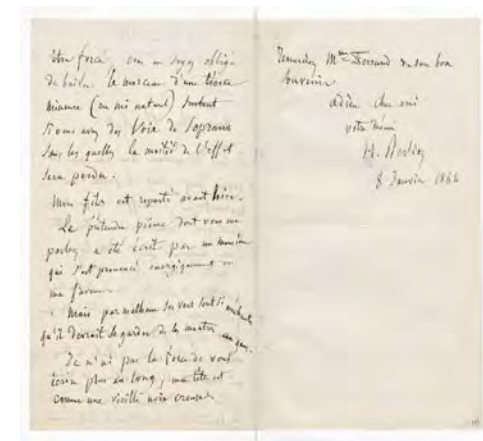 être forcé, ou si vous soyez obligé
de baisser le morceau d'une tierce
mineure (en mi naturel) surtout
si vous avez des Voix de Soprano
sans lesquelles la moitié de l'effet
sera perdu.
Mon fils est reparti avant hier.
Le prétendu poème dont vous me
parlez a été écrit par un monsieur
qui s'est prononcé énergiquement en
ma faveur.
Mais par malheur ses vers sont si méchants
qu'il devrait se garder de les montrer aux gens.
Je n'ai pas la force de vous
écrire plus au long, ma tête est
comme une vieille noix creuse.
Remerciez Mme Ferrand de son bon
souvenir
adieu cher ami
votre
H. Berlioz
8 Janvier 1864